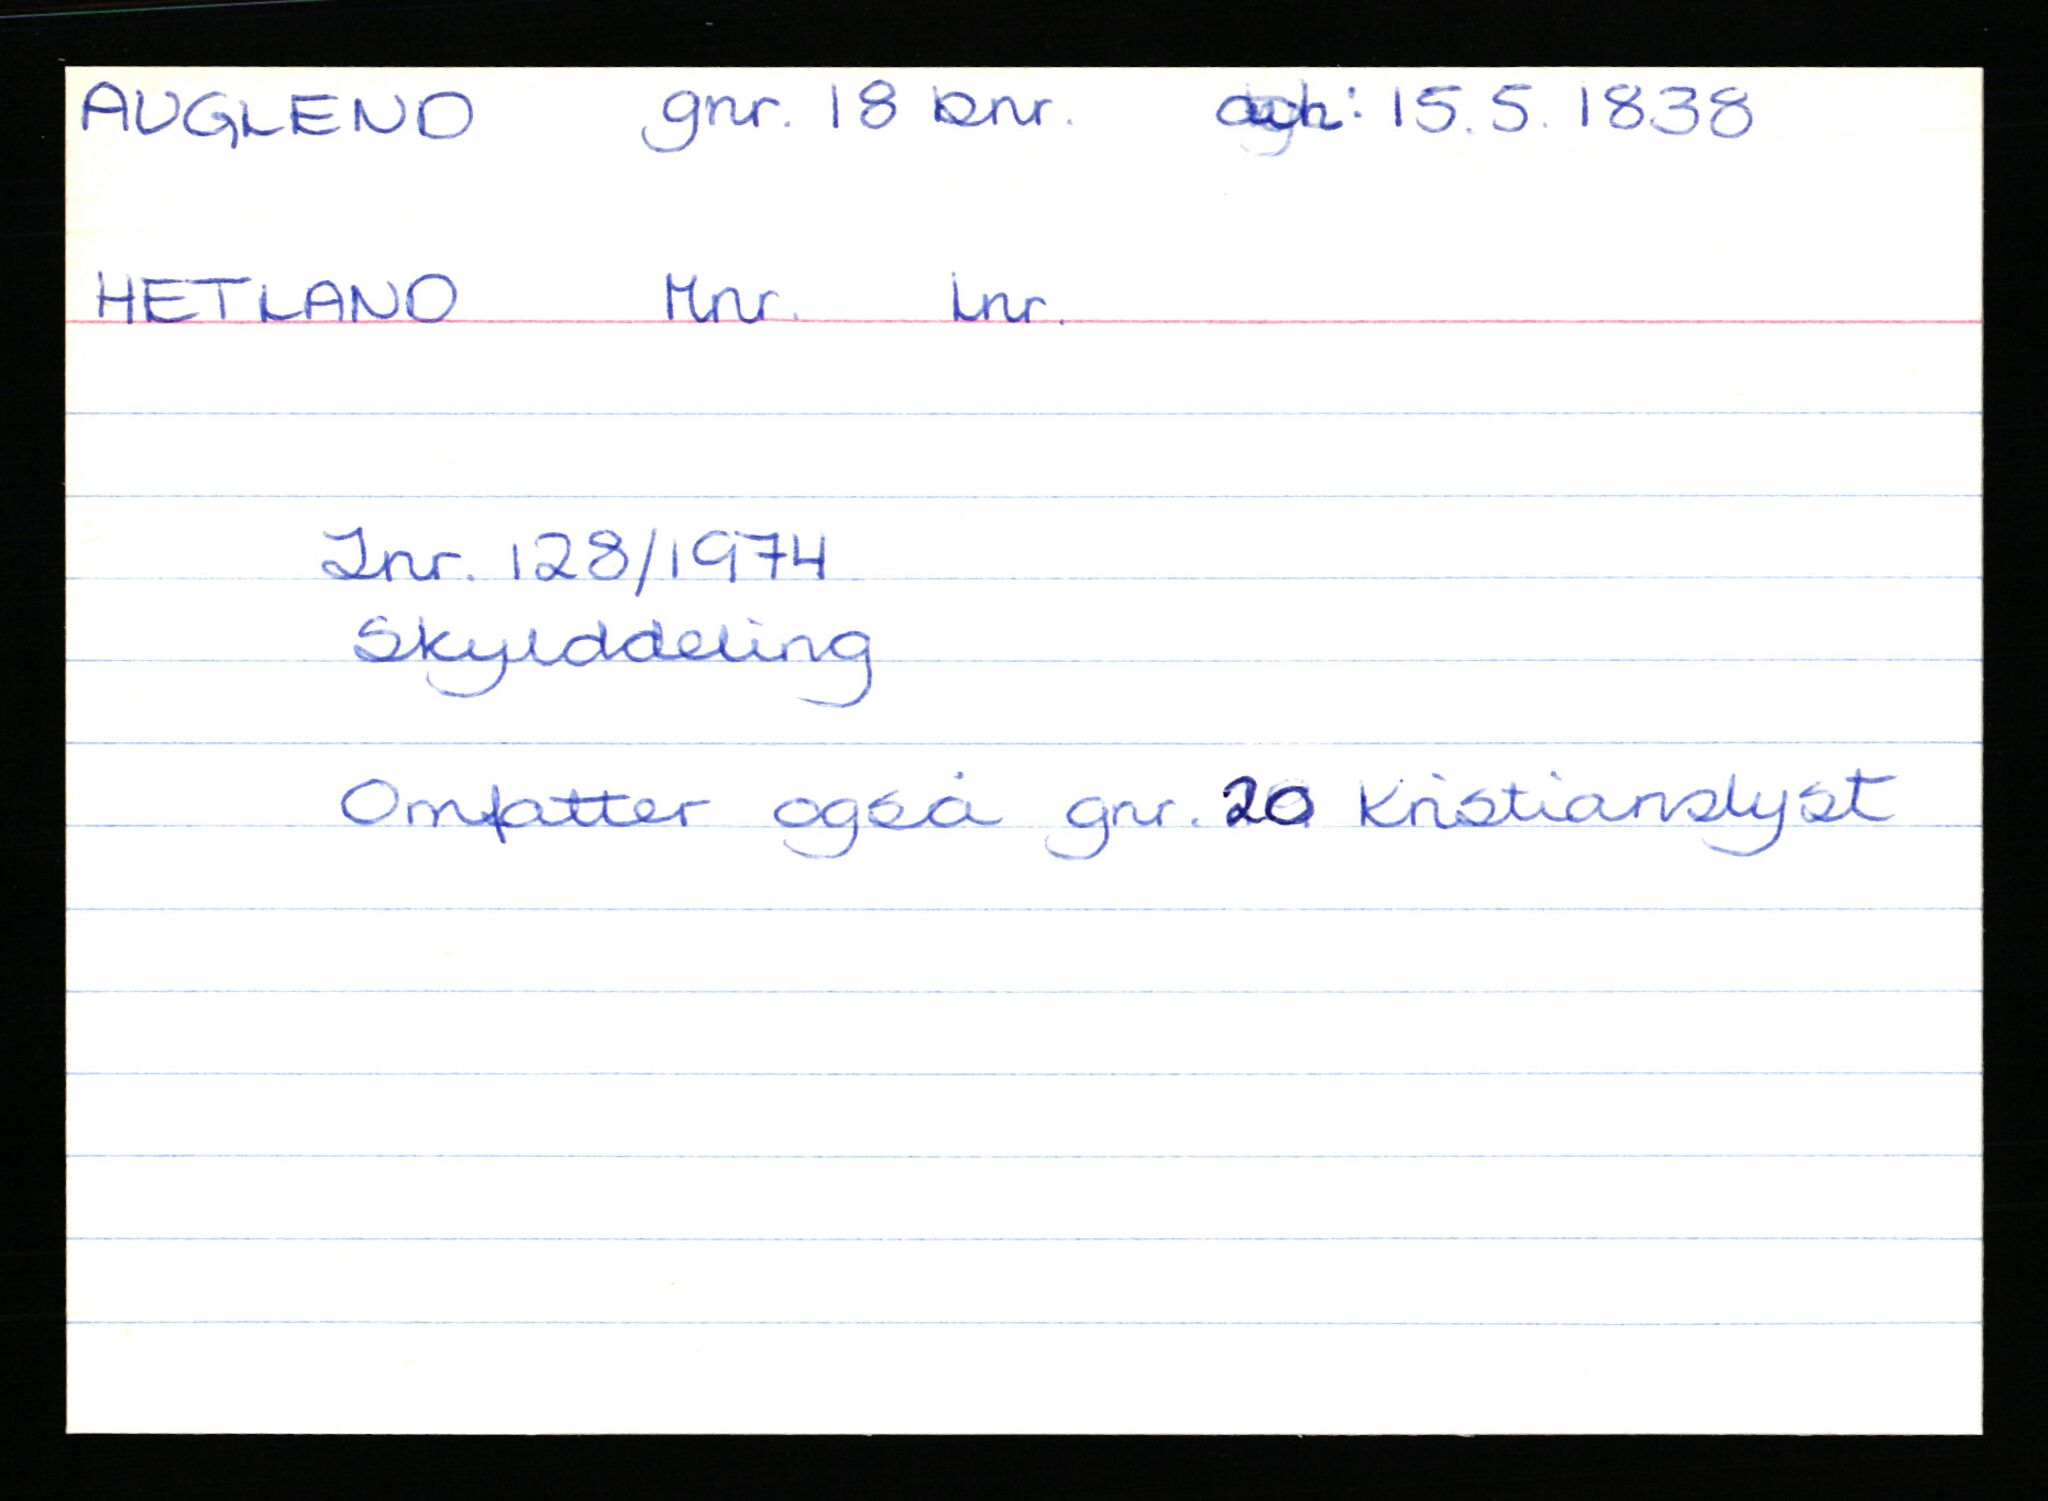 AUGLEND gnr. 18 bnr. : 15.5.1838
HETLAND Mnr. Lnr.
Jnr. 128/1974
Skylddeling
Omfatter også gnr. 20 Kristianslyst